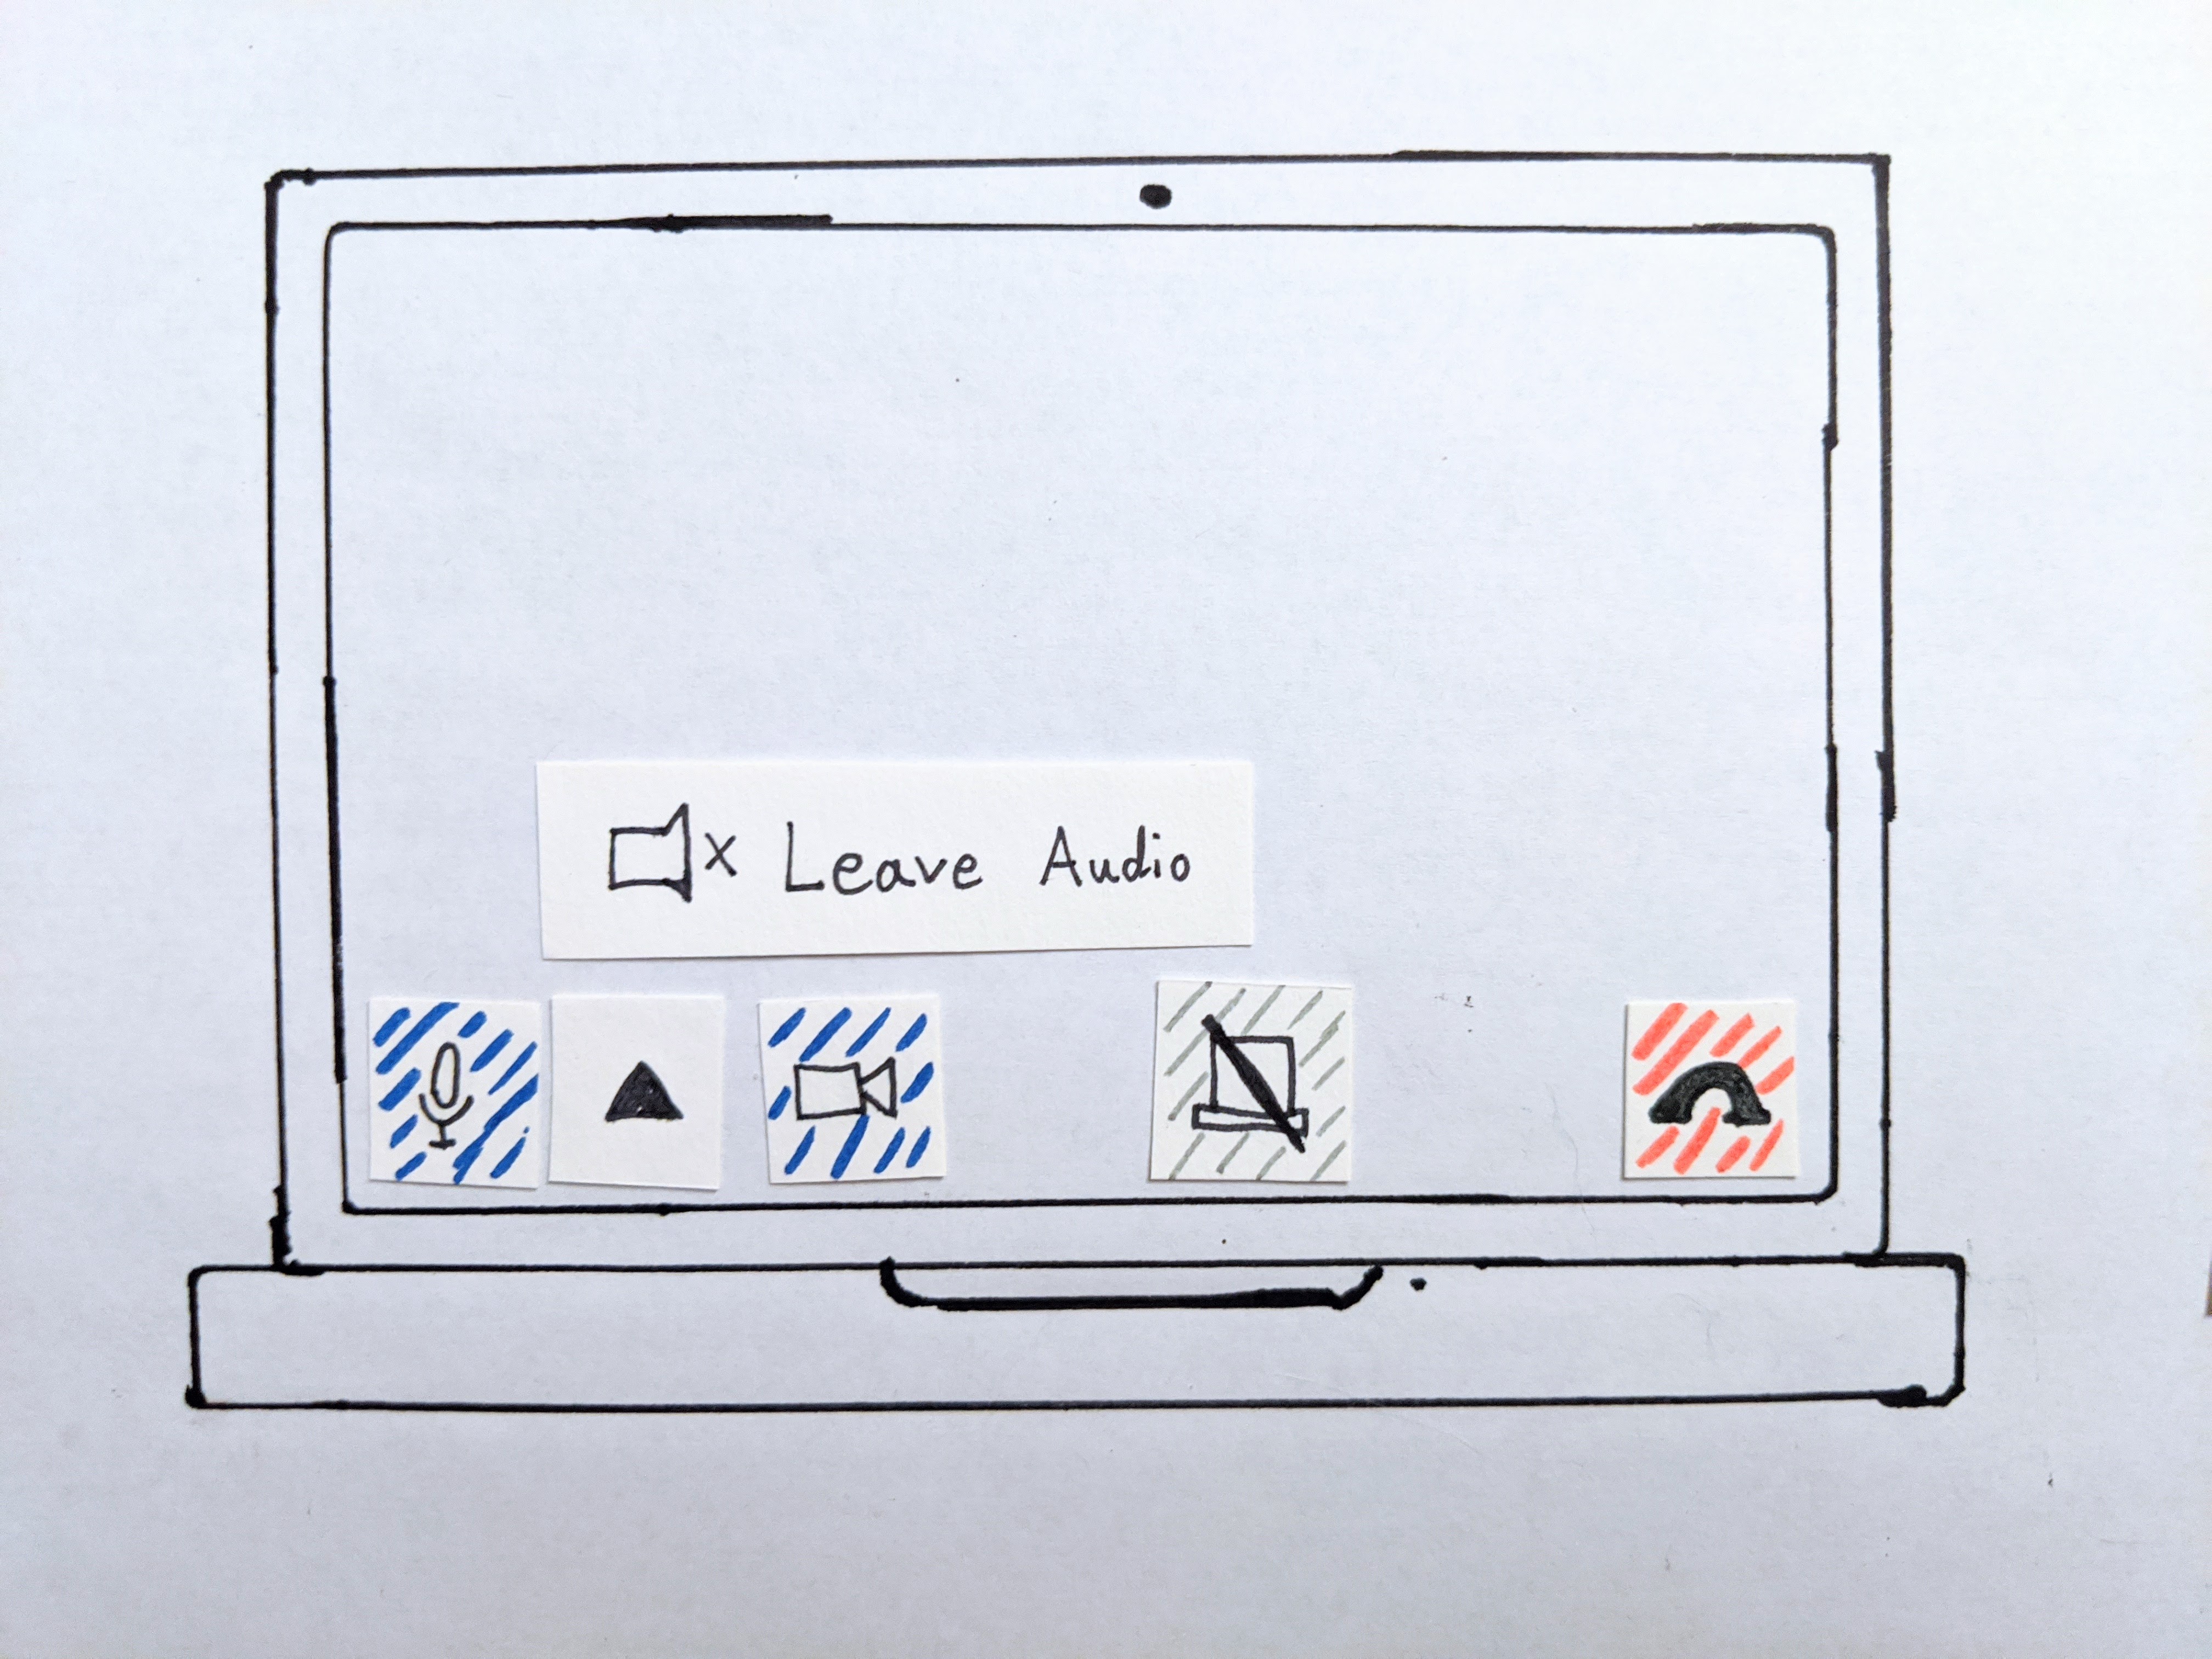 Leave Audio